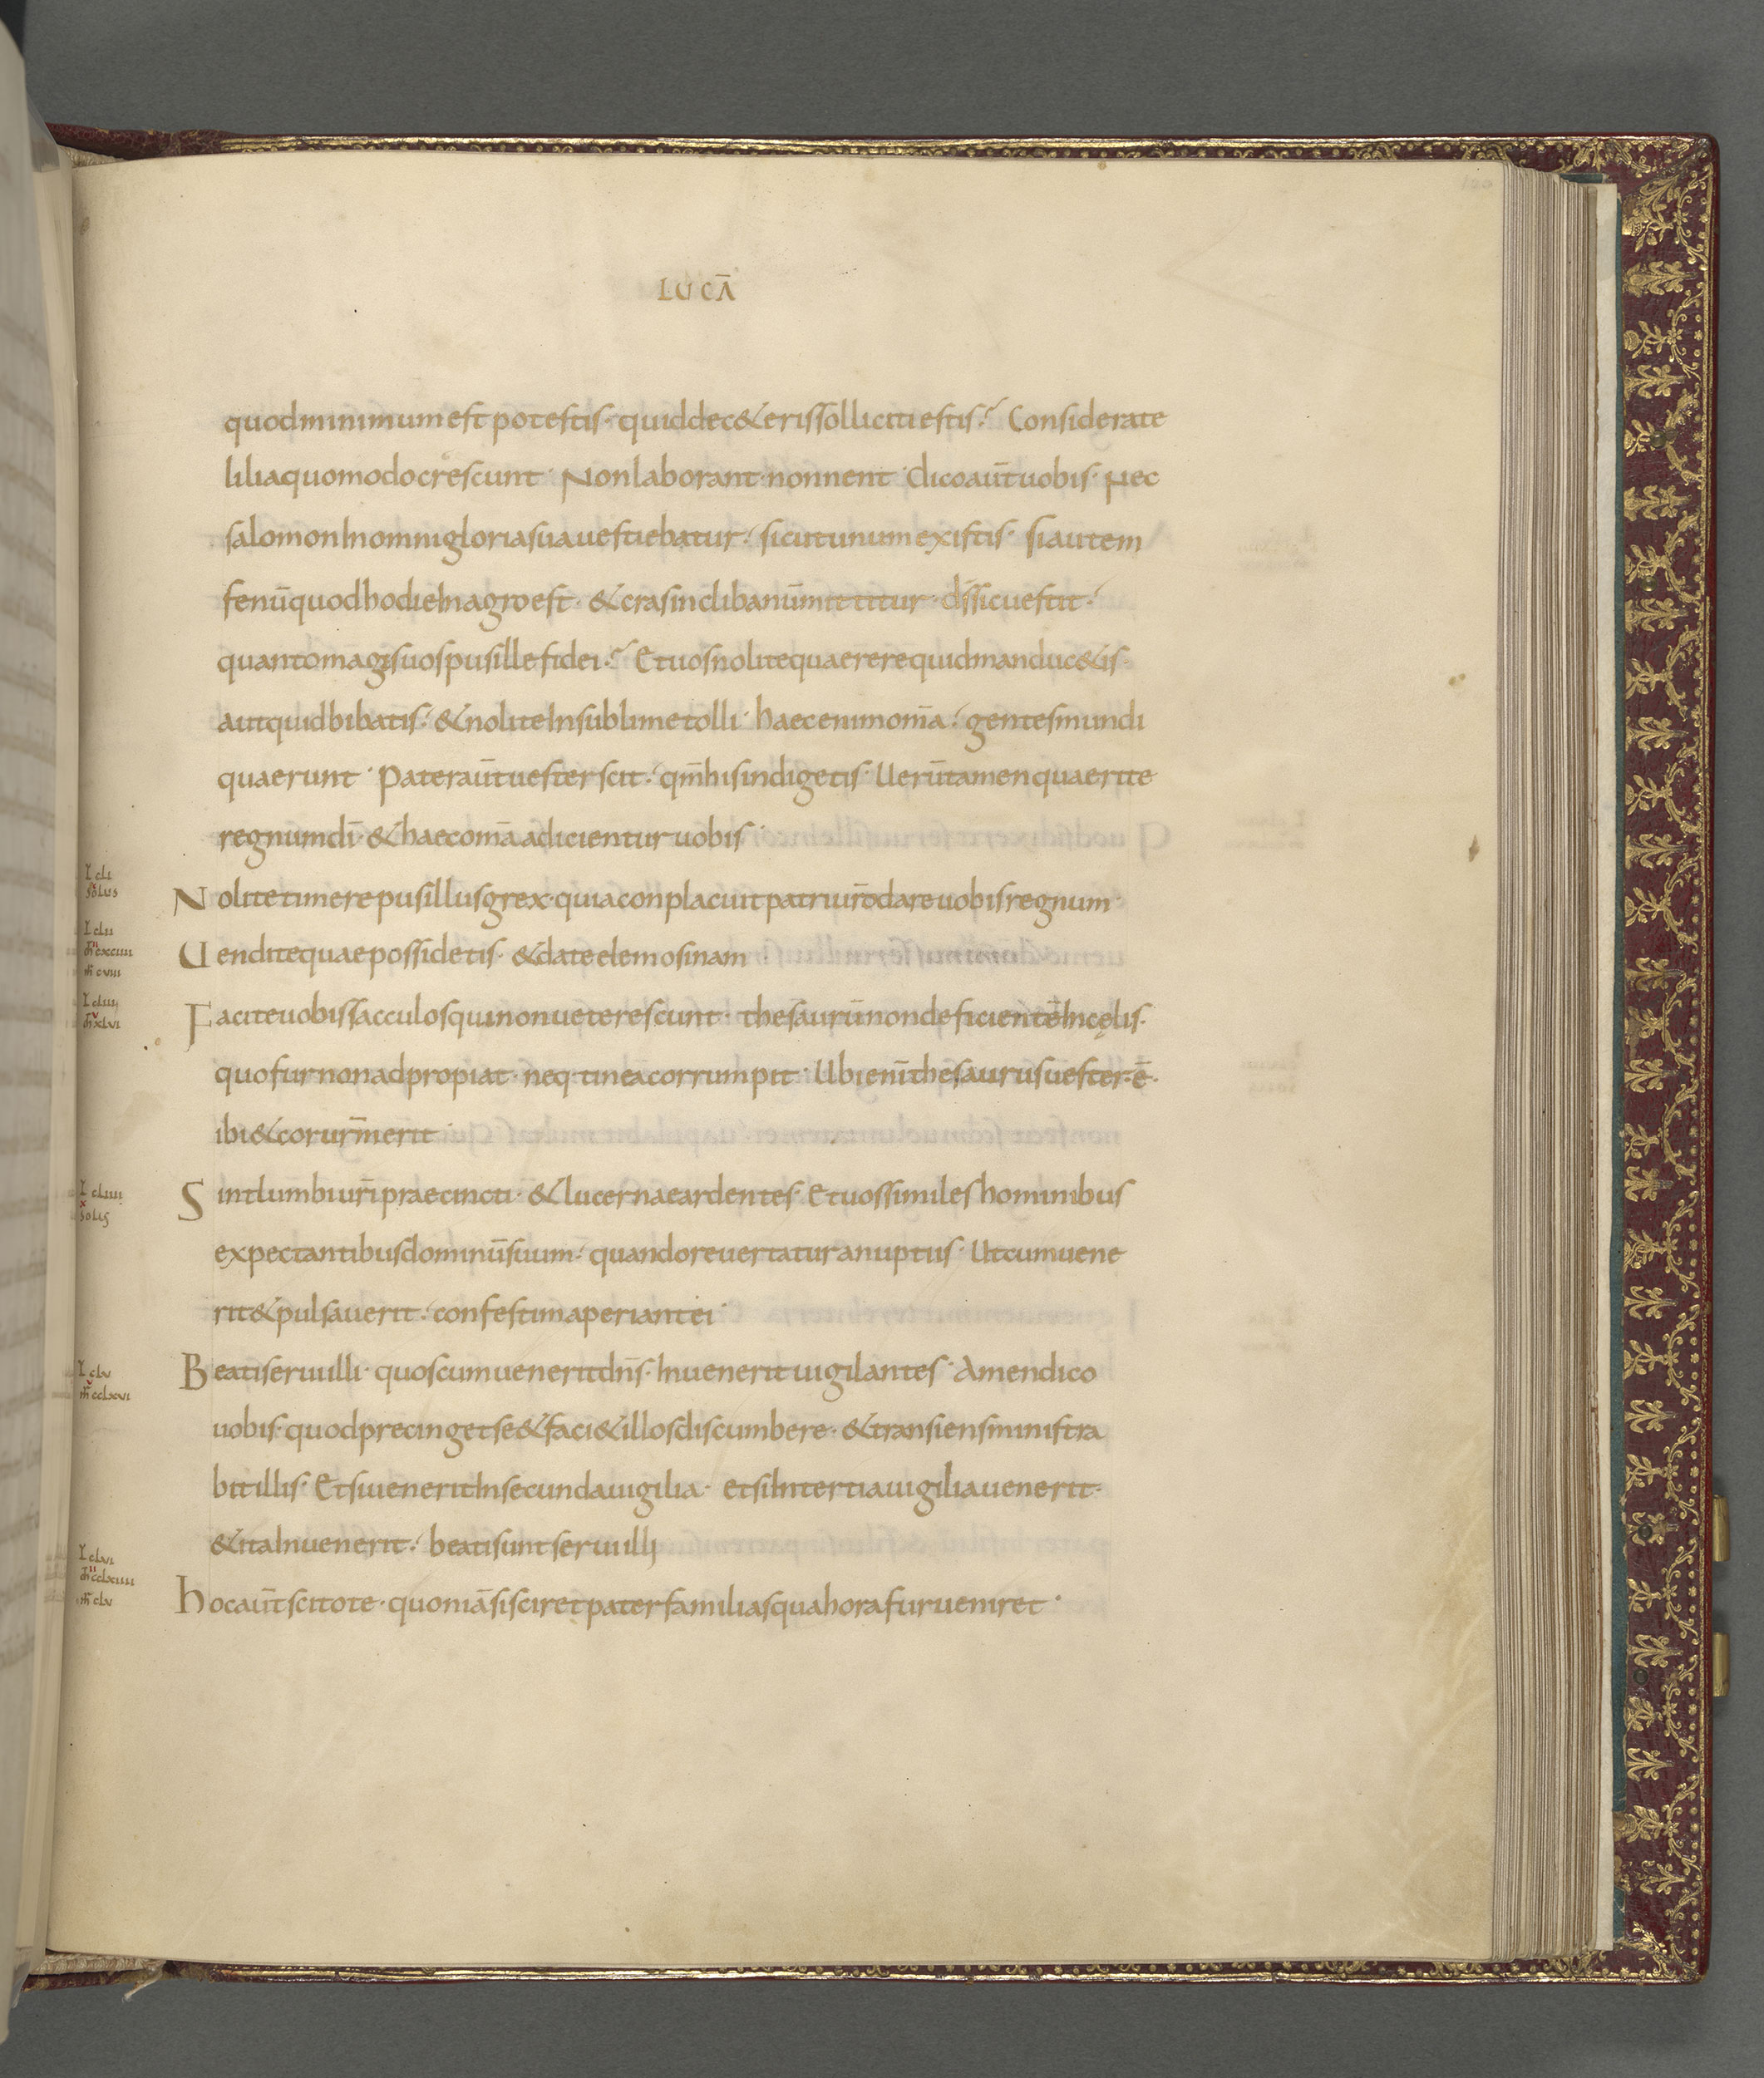 120
LUCĀ
quod minimum est potestis · quid de c&eris solliciti estis · Considerate
lilia quomodo crescunt · Non laborant · non nent · dico aūt uobis · Nec
salomon In omni gloria sua uestiebatur · sicut unum ex istis · si autem
fenū quod hodie In agro est · & cras in clibanū mittitur · d̄s sic uestit ·
quanto magis uos pusille fidei · Et uos nolite quaerere quid manduc&is ·
aut quid bibatis · & nolite In sublime tolli · haec enim om̄a · gentes mundi
quaerunt · Pater aūt uester scit · qm̄ his indigetis · Uerūtamen quaerite
regnum dī · & haec om̄a adicientur uobis ·
L cli
solus
Nolite timere pusillus grex · quia conplacuit patri ur̄o dare uobis regnum ·
L clii
Uendite quae possidetis · & date elemosinam ·
m̄ cxcιιιι
m̄ cuιιι
L cliii
Facite uobis sacculos qui non ueterescunt · thesaurū non deficientē In cęlis ·
m̄ xlui
quo fur non adpropiat · neq· tinea corrumpit · Ubi enī thesaurus uester · ē ·
ibi & cor ur̄m erit ·
L cliiii
Sint lumbi ur̄i praecincti · & lucernae ardentes · Et uos similes hominibus
solus
expectantibus dominū suum · quando reuertatur a nuptiis · Ut cum uene
rit & pulsauerit · confestim aperiant ei ·
L clu
Beati serui illi · quos cum uenerit dn̄s · Inuenerit uigilantes · Amen dico
m̄ cclxui
uobis · quod precinget se & faci& illos discumbere · & transiens ministra
bit illis · Et si uenerit In secunda uigilia · et si In tertia uigilia uenerit ·
& ita Inuenerit · beati sunt serui illi
L clui
m̄ cclxiiii
Hoc aūt scitote · quoniā si sciret pater familias qua hora fur ueniret ·
m̄ clu